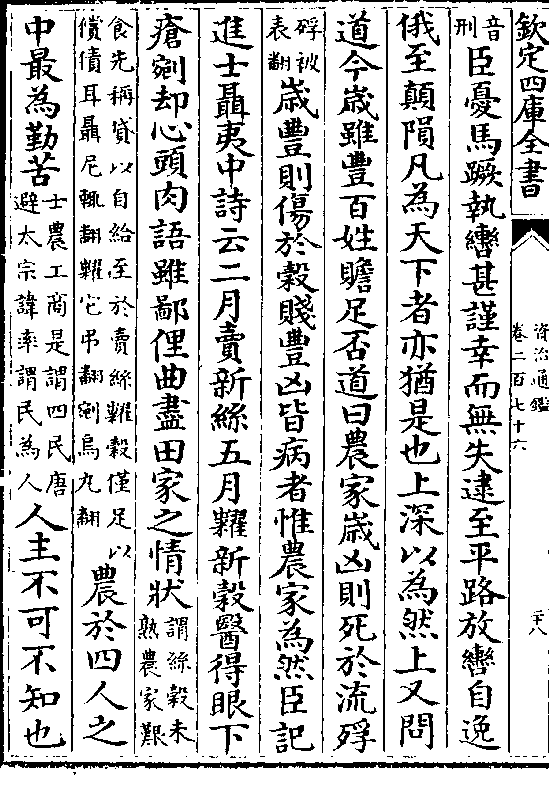 欽定四庫全書
資治通鑑
卷二百七十六
二十八
音
刑
臣憂馬蹶執轡甚謹幸而無失逮至平路放轡自逸
俄至顛隕凡為天下者亦猶是也上深以為然上又問
道今歲雖豐百姓贍足否道曰農家歲凶則死於流殍
殍被
表翻
歲豐則傷於穀賤豐凶皆病者惟農家為然臣記
進士聶夷中詩云二月賣新絲五月糶新穀醫得眼下
瘡剜却心頭肉語雖鄙俚曲盡田家之情狀
謂絲穀未
熟農家艱
食先稱貸以自給至於賣絲糶穀僅足以
償債耳聶尼輒翻糶它弔翻剜烏丸翻
農於四人之
中最為勤苦
士農工商是謂四民唐
避太宗諱率謂民為人
人主不可不知也